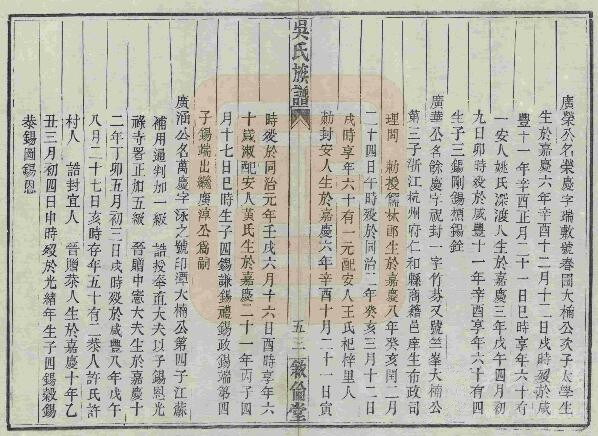 廣榮公名榮慶字瑞敷號春園大楠公次子太學生
生於嘉慶六年辛酉十二月十二日戌時歿於咸
豐十一年辛酉正月二十一日巳時享年六十有
一安人姚氏深渡人生於嘉慶三年戊午四月初
九日卯時歿於咸豐十一年辛酉享年六十有四
生子三錫剛錫熕錫銓
廣華公名餘慶字祝封一字竹葊又號竺峯大楠公
第三子浙江杭州府仁和縣商籍邑庠生布政司
理問 勅授儒林郎生於嘉慶八年癸亥閏二月
二十四日午時歿於同治二年癸亥三月十二日
戌時享年六十有一元配安人王氏杞梓里人
勅封安人生於嘉慶六年辛酉十月二十一日寅
吳氏族譜
五三
敘倫堂
時歿於同治元年壬戌六月十六日酉時享年六
十歲淑配安人黃氏生於嘉慶二十一年丙子四
月十七日巳時生子四錫謙錫禮錫政錫端第四
子錫端出繼廣漳公爲嗣
廣涵公名萬慶字泳之號印潭大楠公第四子江蘇
補用通判加一級 誥授奉直大夫以子錫恩光
祿寺署正加五級 晉贈中憲大夫生於嘉慶十
二年丁卯五月初三日戌時歿於咸豐八年戊午
八月二十七日亥時存年五十有二恭人許氏許
村人 誥封宜人 晉贈恭人生於嘉慶十年乙
丑三月初四日申時歿於光緒年生子四錫穀錫
恭錫圖錫恩